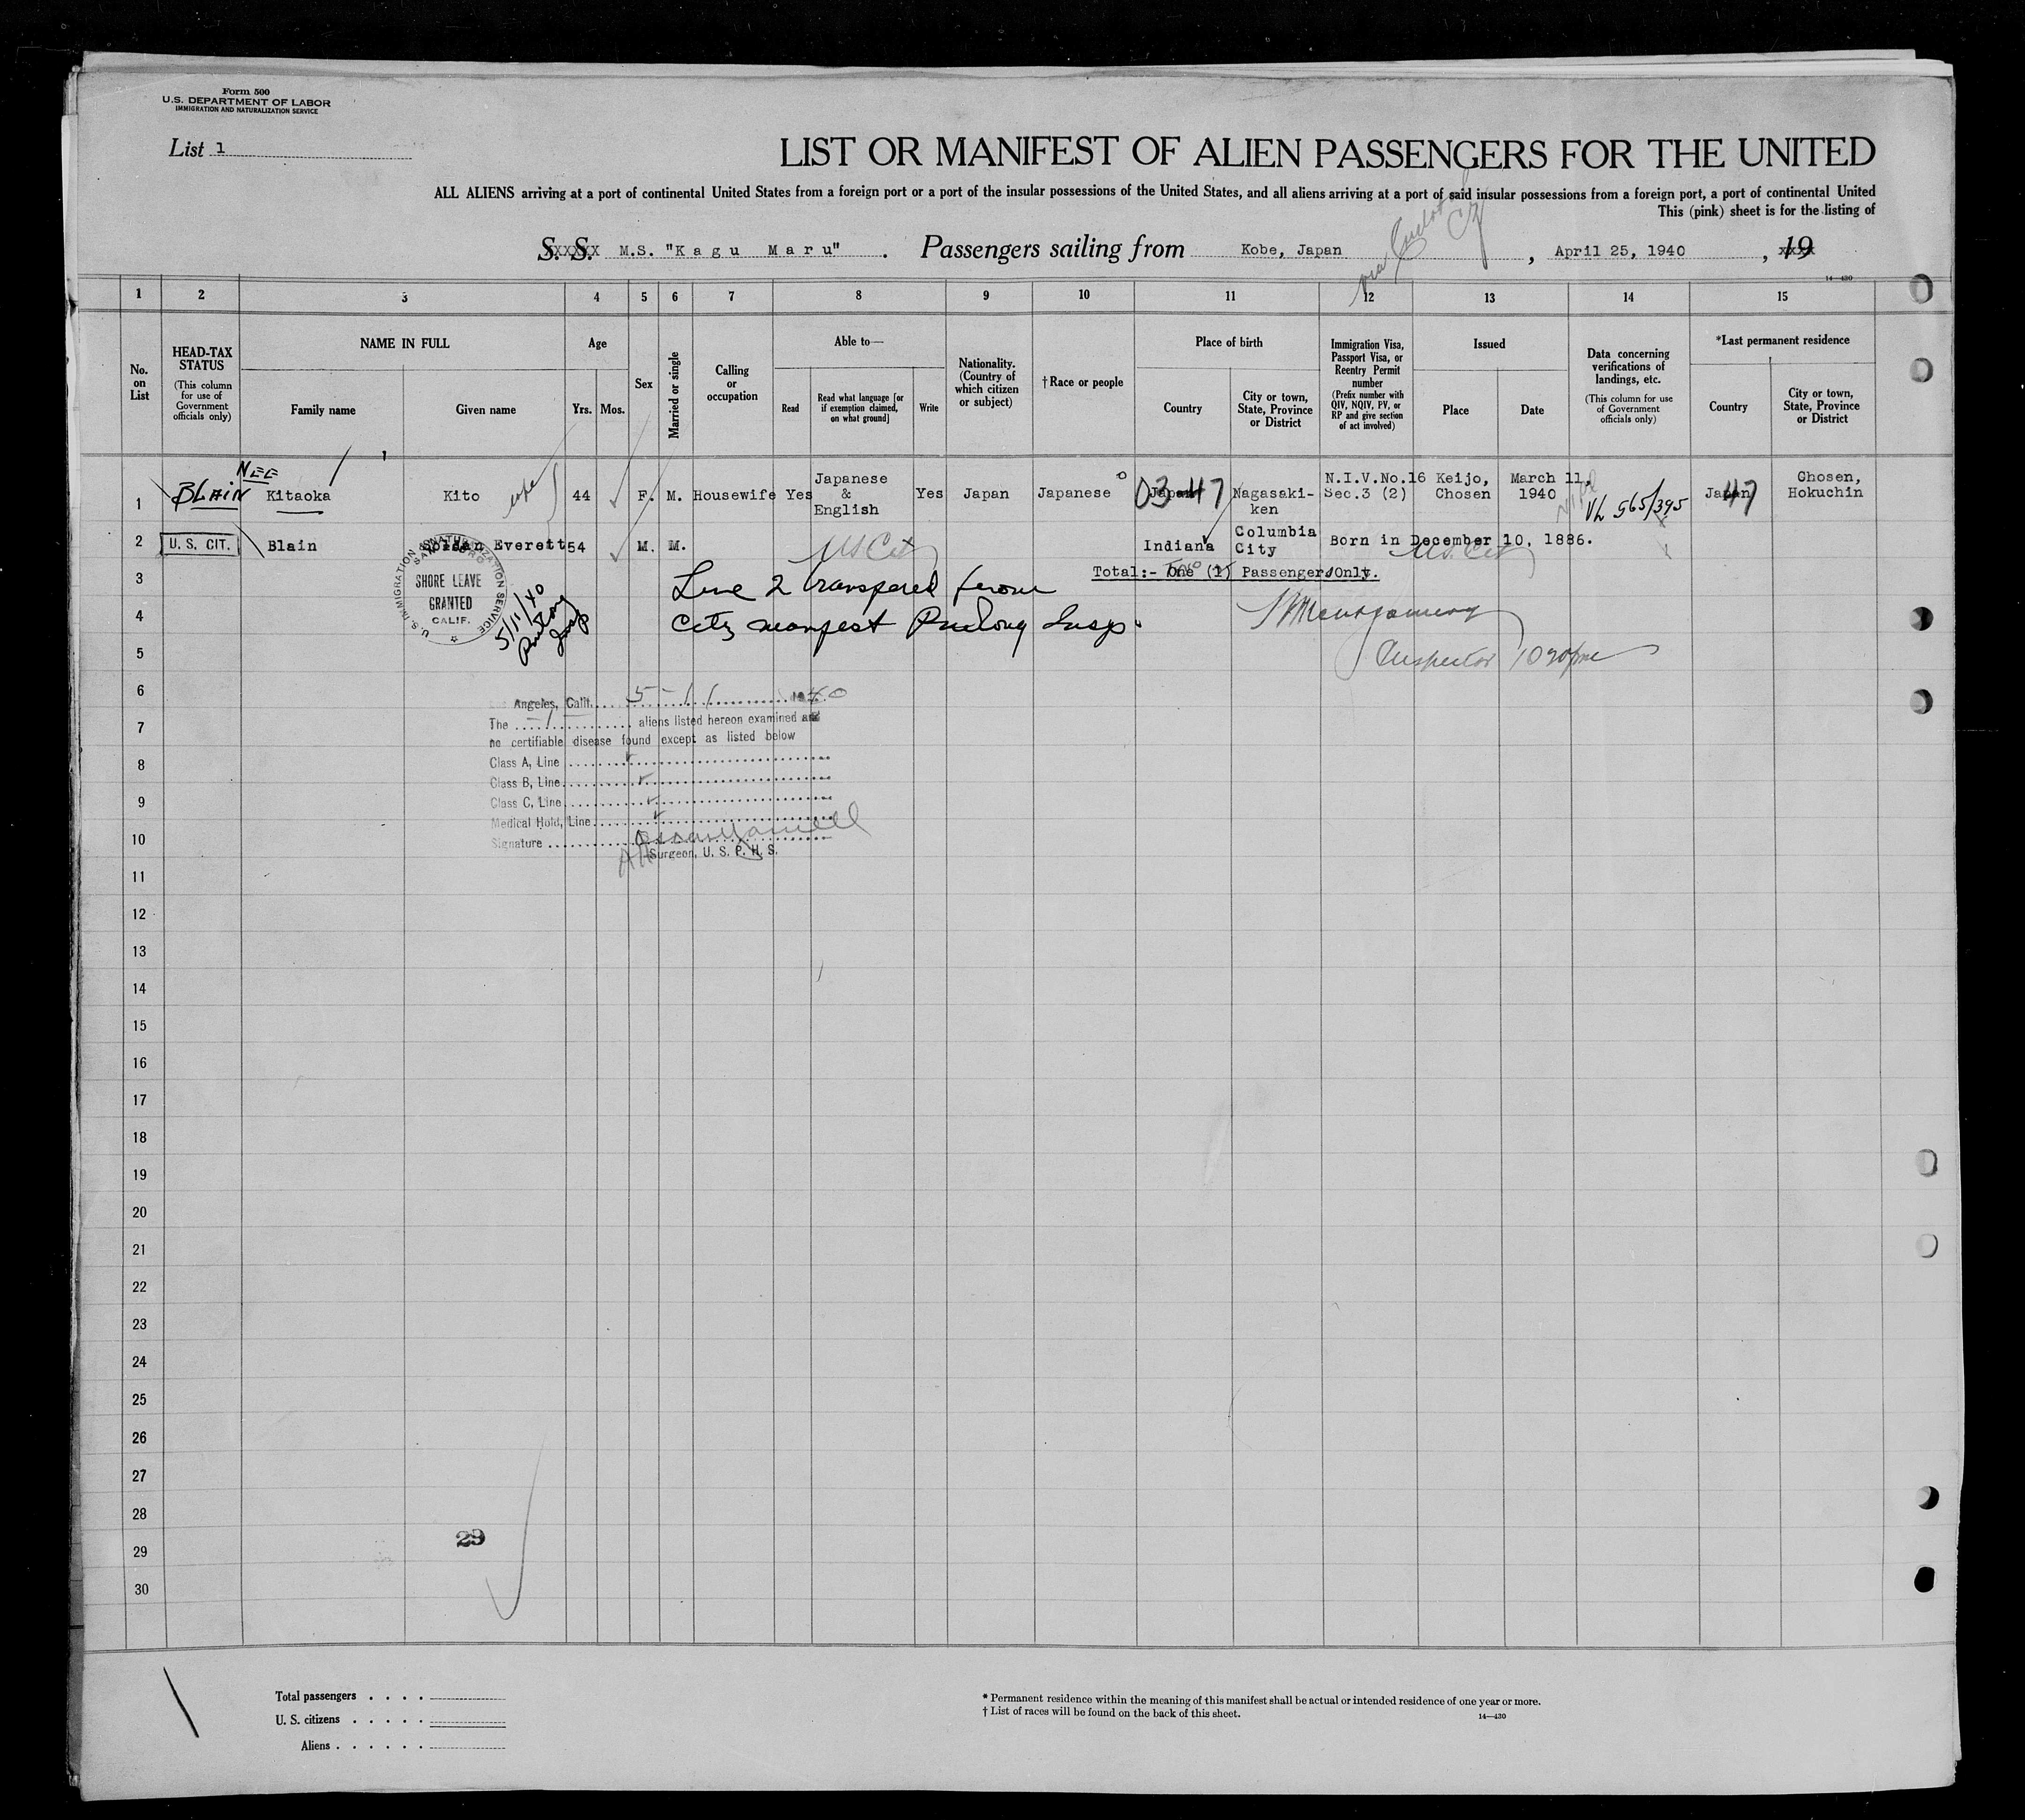 Form 500
U.S. DEPARTMENT OF LABOR
IMMIGRATION AND NATURALIZATION SERVICE
List 1
LIST OR MANIFEST OF ALIEN PASSENGERS FOR THE UNITED
ALL ALIENS arriving at a port of continental United States from a foreign port or a port of the insular possessions of the United States, and all aliens arriving at a port of said insular possessions from a foreign port, a port of continental United
This (pink) sheet is for the listing of
S. S. M.S. "Kagu Maru". Passengers sailing from Kobe, Japan, April 25, 1940, 19
via
14—430
1 2 3 4 5 6 7 8 9 10 11 12 13 14 15
No. on List
HEAD-TAX STATUS
(This column for use of Government officials only)
NAME IN FULL
Family name
Given name
Age
Yrs. Mos.
Sex
Married or single
Calling or occupation
Able to—
Read
Read what language [or if exemption claimed, on what ground]
Write
Nationality. (Country of which citizen or subject)
†Race or people
Place of birth
Country
City or town, State, Province or District
Immigration Visa, Passport Visa, or Reentry Permit number
(Prefix number with QIV, NQIV, PV, or RP and give section of act involved)
Issued
Place
Date
Data concerning verifications of landings, etc.
(This column for use of Government officials only)
*Last permanent residence
Country
City or town, State, Province or District
1 BLAIN NEE Kitaoka Kito 44 F. M. Housewife Yes Japanese & English Yes Japan Japanese Japan 03-47 Nagasaki-ken N.I.V.No.16 Sec.3 (2) Keijo, Chosen March 11, 1940 VL 565/395 Japan 47 Chosen, Hokuchin
2 U. S. CIT. Blain Everett 54 M. M. US Cit Indiana Columbia City Born in December 10, 1886. U.S. Cit
Total:- One (1) Passenger Only.
U.S. IMMIGRATION & NATURALIZATION SERVICE
SHORE LEAVE
GRANTED
CALIF.
5/11/40
Insp
3 Line 2 transfered from
4 Citz manifest Insp.
Montgomery
5 Inspector 1030pm
6 Angeles, Calif. 5-11 1940
7 The 1 aliens listed hereon examined and
no certifiable disease found except as listed below
8 Class A, Line
Class B, Line
9 Class C, Line
Medical Hold, Line
10 Signature
Surgeon, U. S. P. H. S.
11
12
13
14
15
16
17
18
19
20
21
22
23
24
25
26
27
28
29
29
30
Total passengers
U. S. citizens
Aliens
* Permanent residence within the meaning of this manifest shall be actual or intended residence of one year or more.
† List of races will be found on the back of this sheet.
14—430